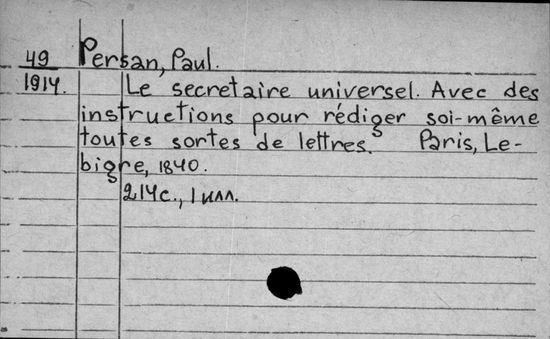 49 Persan, Paul.
1914. Le secretaire universel. Avec des
instructions pour rédiger soi-même
toutes sortes de lettres. Paris, Le-
bigre, 1840.
214с., 1 илл.